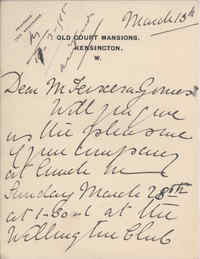 March 15th
OLD COURT MANSIONS,
KENSINGTON.
W.
Dear M. Teixeira Gomes
Will you give
us the pleasure
of your company
at lunch on
Sunday March 28th
at 1-30 at the
Wellington Club